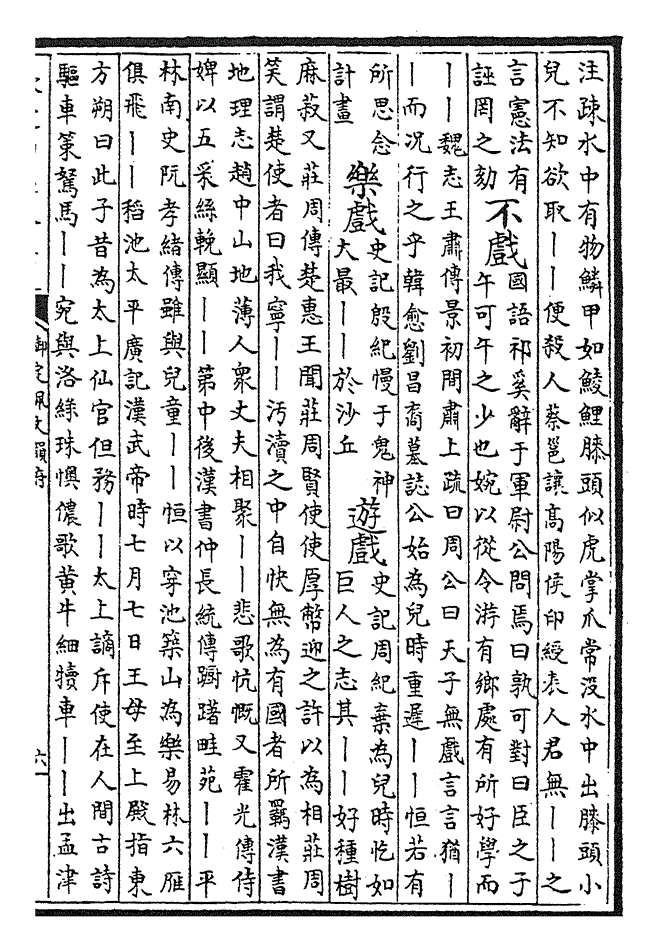 注疎水中有物鱗甲如鯪鯉膝頭似虎掌爪常没水中出膝頭小
兒不知欲取丨丨便殺人蔡邕讓高陽侯印綬表人君無丨丨之
言憲法有誣罔之劾
不戲
國語祁奚辭于軍尉公問焉曰孰可對曰臣之子
午可午之少也婉以從令游有鄉處有所好學而
丨丨魏志王肅傳景初間肅上疏曰周公曰天子無戲言言猶丨
丨而况行之乎韓愈劉昌裔墓誌公始為兒時重遲丨丨恒若有
所思念計畫
樂戲
史記殷紀慢于鬼神
大最丨丨於沙丘
遊戲
史記周紀棄為兒時屹如
巨人之志其丨丨好種樹
麻菽又莊周傳楚惠王聞莊周賢使使厚幣迎之許以為相莊周
笑謂楚使者曰我寧丨丨汚瀆之中自快無為有國者所羈漢書
地理志趙中山地薄人衆丈夫相聚丨丨悲歌忼慨又霍光傳侍
婢以五采絲輓顯丨丨第中後漢書仲長統傳蹰躇畦苑丨丨平
林南史阮孝緒傳雖與兒童丨丨恒以穿池築山為樂易林六雁
俱飛丨丨稻池太平廣記漢武帝時七月七日王母至上殿指東
方朔曰此子昔為太上仙官但務丨丨太上謫斥使在人間古詩
驅車策駑馬丨丨宛與洛綠珠懊儂歌黄牛細犢車丨丨出孟津
御定佩文韻府
六一